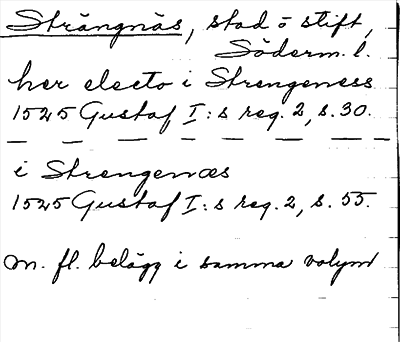 Strängnäs, stad o stift,
Söderm. l.
her electo i Strengeness
1525 Gustaf I:s reg. 2, s. 30.
i Strengenæs
1525 Gustaf I:s reg. 2, s. 55.
m. fl. belägg i samma volym